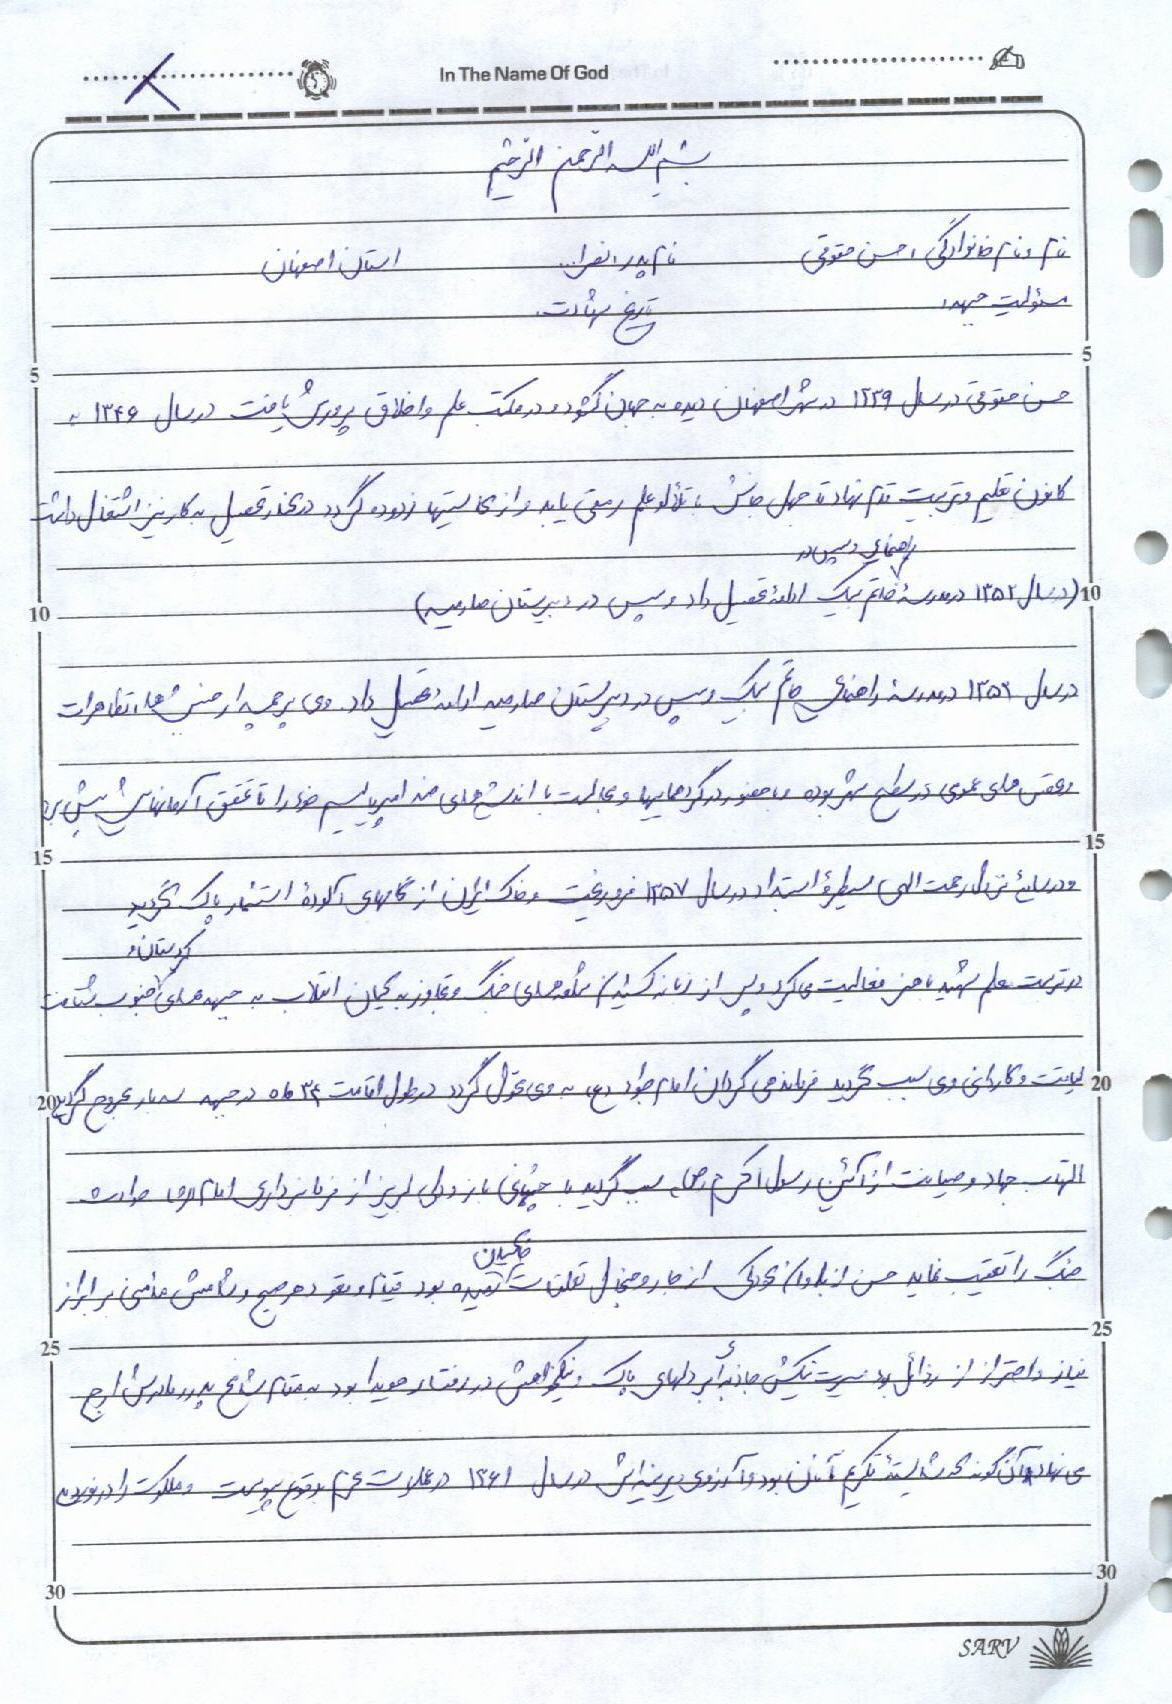 In The Name Of God
بسم الله الرحمن الرحیم
نام و نام خانوادگی : حسن حقوقی نام پدر : نصرا... استان اصفهان
مسؤلیت جبهه : تاریخ شهادت :
حسن حقوقی در سال ۱۳۳۹ در شهر اصفهان دیده به جهان گشود و در مکتب علم و اخلاق پرورش یافت در سال ۱۳۴۶ به
کانون تعلیم و تربیت قدم نهاد تا جهل جانش با تلألو علم روشنی یابد و از کاستیها زدوده گردد در کنار تحصیل به کار نیز اشتغال داشت
راهنمایی و سپس در
(در سال ۱۳۵۲ در مدرسهٔ خاتم بیک ادامهٔ تحصیل داد و سپس در دبیرستان صارمیه)
در سال ۱۳۵۲ در مدرسهٔ راهنمایی خاتم بیک و سپس در دبیرستان صارمیه ادامه تحصیل داد. وی پرچمدار جنبش ها، تظاهرات
و های عمومی در سطح شهر بوده و با حضور در گردهماییها و مجالست با اندیشه های ضد امپریالیسم خود را تا تحقق آرمانهایش پیش برد
و در سایهٔ نزول رحمت الهی سیطرهٔ استبداد در سال ۱۳۵۷ فرو ریخت و خاک ایران از گامهای آلودهٔ استثمار پاک گردید
کردستان و
در تربیت معلم شهید باهنر فعالیت می کرد و پس از زبانه کشیدن شعله های جنگ و تجاوز به کیان انقلاب به جبهه های جنوب شتافت
لیاقت و کاردانی وی سبب گردید فرماندهی گردان امام جواد (ع) به وی محول گردد در طول اقامت ۳۴ ماه در جبهه سه بار مجروح گردید
التهاب جهاد و صیانت از آئین رسول اکرم (ص) سبب گردید با باز و دلی لبریز از فرمانبرداری امام (ره) حوادث
خاکیان
جنگ را تعقیب نماید حسن از بدوان کودکی از جار و جنجال تعلقات رهیده بود قیام و قعود هر صبح و شامش بر ابراز
نیاز و احتراز از رذائل بود سیرت نیکش جاذبه ای بر دلهای پاک و نیکخواهیش در رفتار هویدا بود به مقام شامخ پدر و مادرش ارج
می نهاد آن گونه که شایستهٔ تکریم آنان بود و آرزوی دیرینه اش در سال ۱۳۶۱ در عملیات محرم بوقوع پیوست و ملکوت را در نوردید
5
10
15
20
25
30
SARV